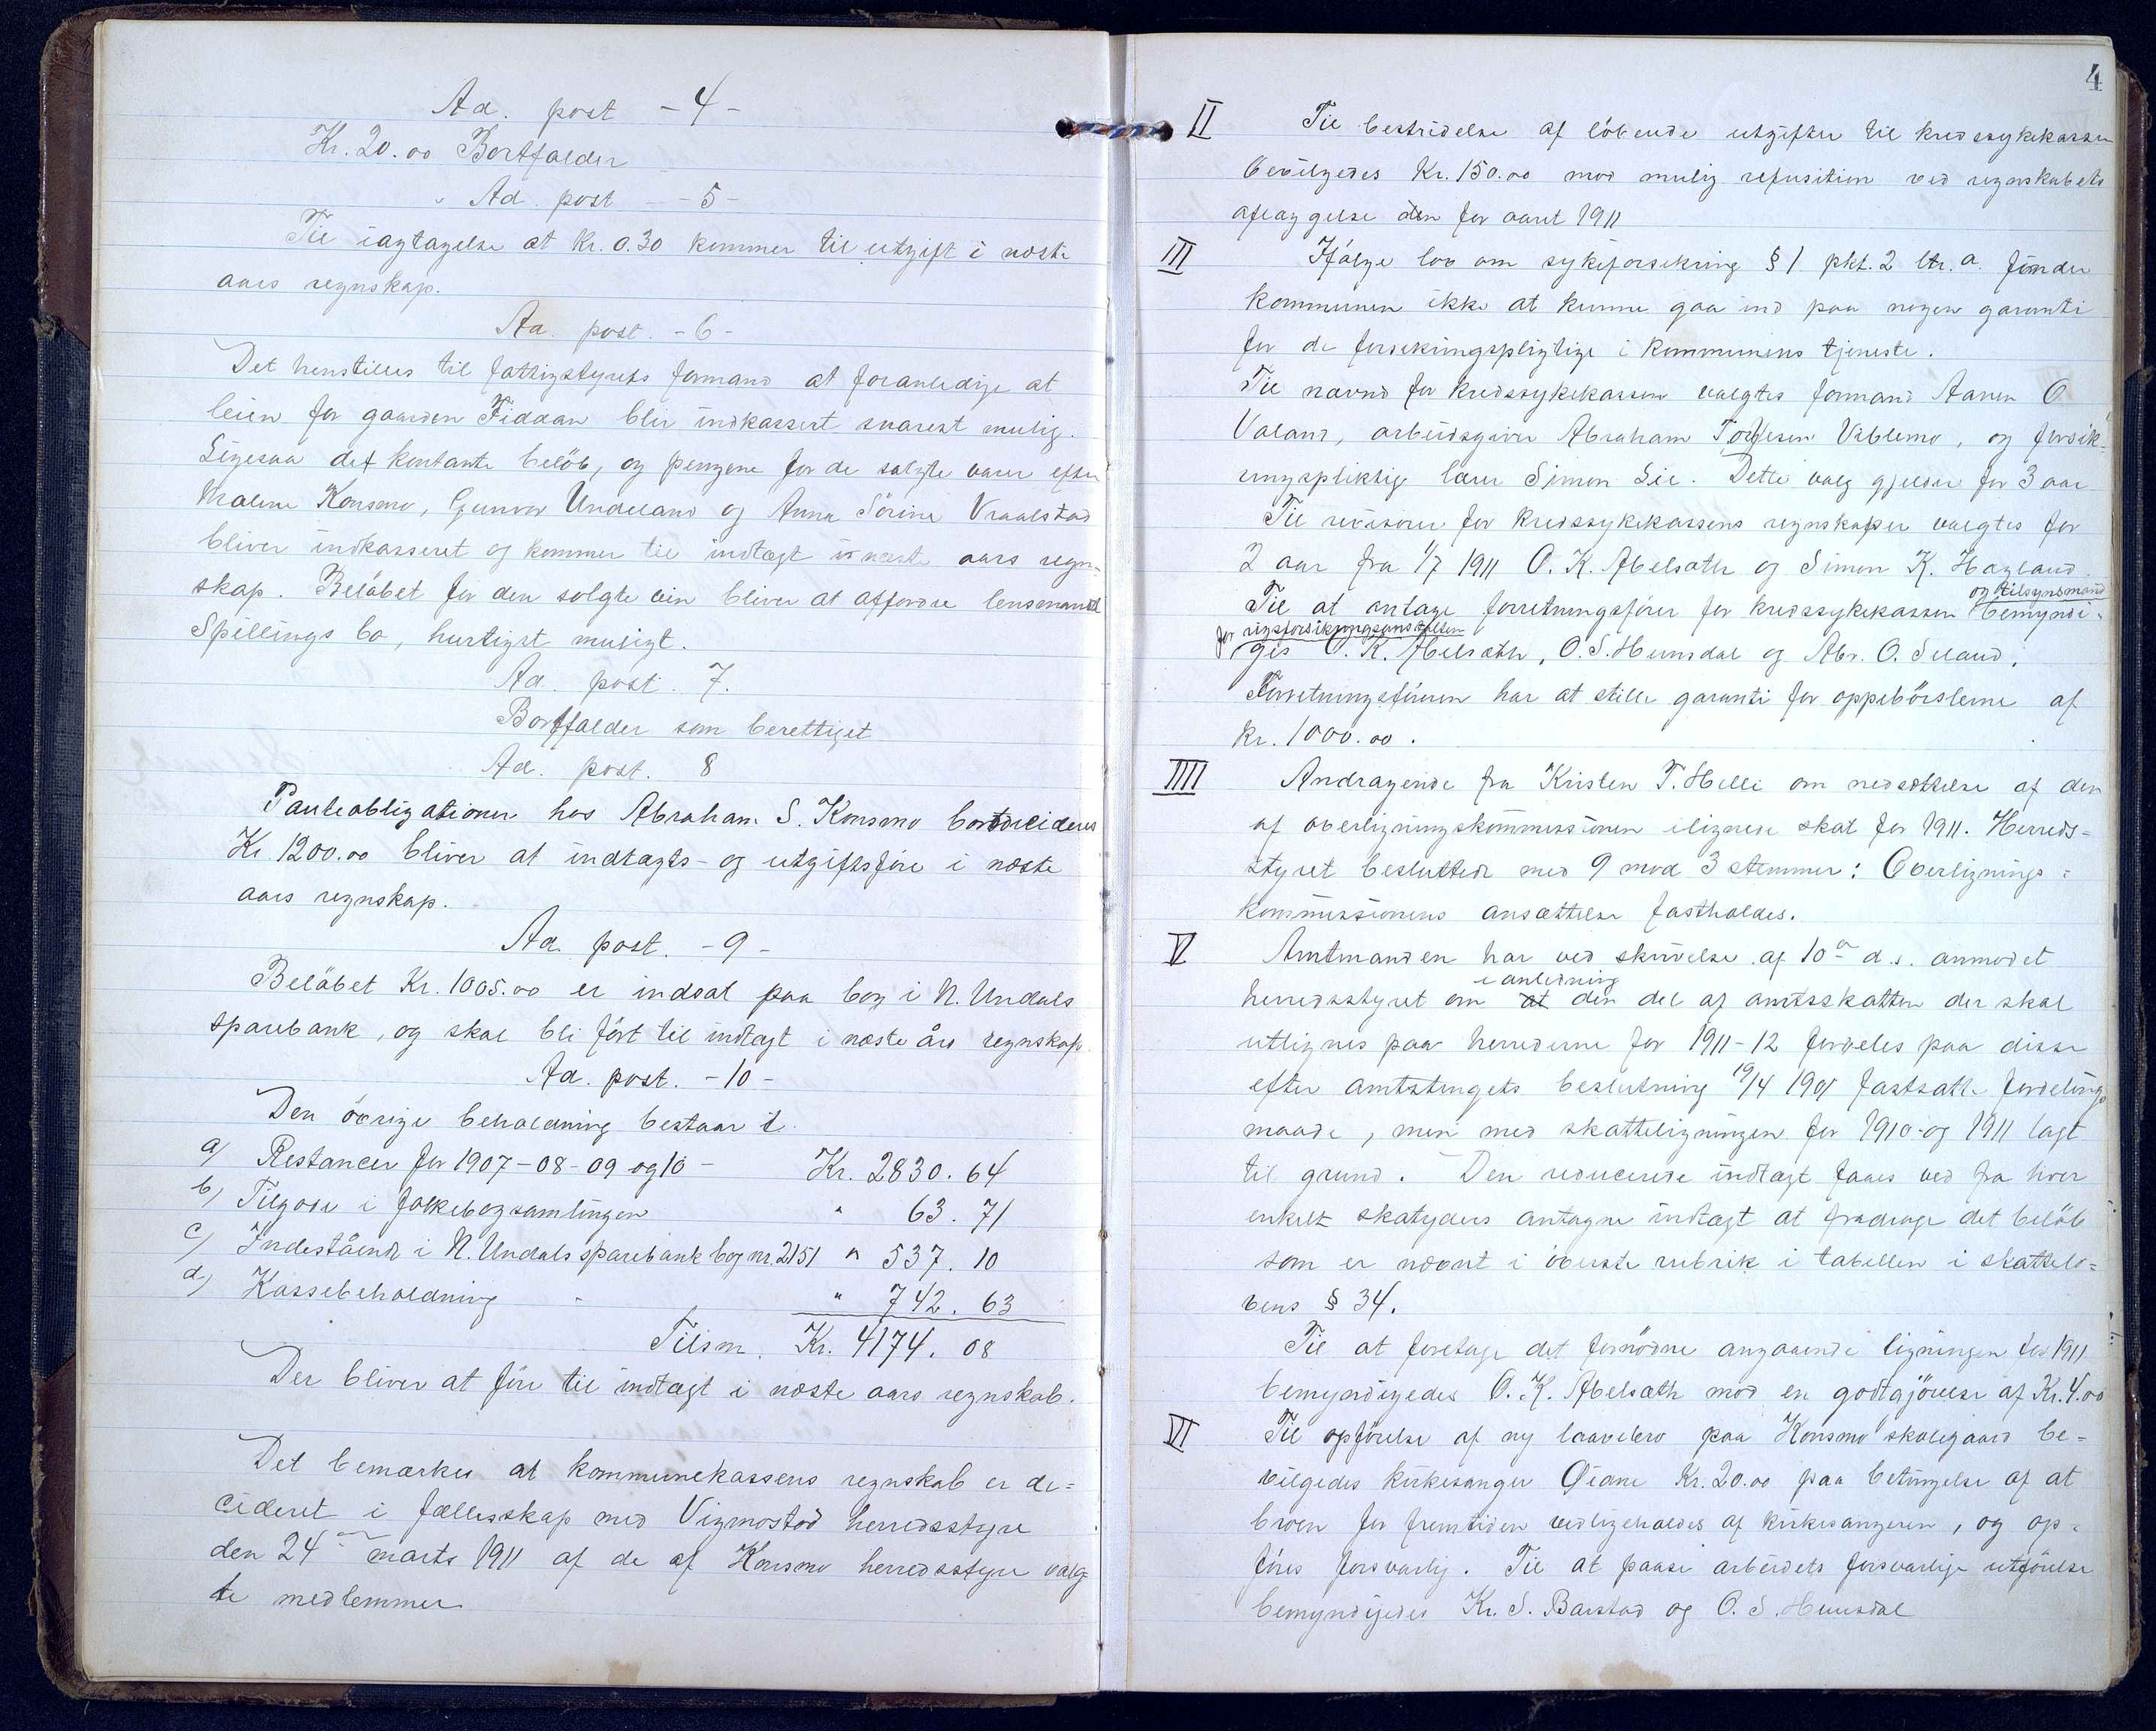 Ad. post - 4 -
Kr. 20.00 Bortfalder
Ad. post - 5 -
Til iagtagelse at kr. 0.30 kommer til utgift i næste
aars regnskap.
Ad. post. - 6 -
Det henstilles til fattigstyrets formand at foranledige at
leien for gaarden Fiddan blir indkassert snarest mulig.
Ligesaa det kontante belöb, og pengene for de solgte varer efter
Malene Konsmo, Gunvor Undeland og Anna Sörine Vraalstad
bliver indkasseret og kommer til indtægt i næste aars regn-
skap. Belöbet for den solgte vin bliver at affordre lensmand
Spillings bo, hurtigst muligt.
Ad. post. 7.
Bortfalder som berettiget
Ad. post. 8
Panteobligationen hos Abraham S. Konsmo
Kr. 1200.00 bliver at indtægts- og utgiftsföre i næste
aars regnskap.
Ad. post. - 9 -
Belöbet Kr. 1005.00 er indsat paa bog i N. Undals
sparebank, og skal bli fört til indtægt i næste års regnskap.
Ad. post. - 10 -
Den övrige beholdning bestaar i
a) Restancer for 1907-08-09 og 10 - Kr. 2830. 64
b) Tilgode i folkebogsamlingen " 63. 71
c) Indestående i N. Undals sparebank bog nr. 2151 " 537. 10
d) Kassebeholdning " 742. 63
Tilsm. Kr. 4174. 08
Der bliver at före til indtægt i næste aars regnskab.
Det bemærkes at kommunekassens regnskab er de=
cideret i fællesskap med Vigmostad herredsstyre
den 24de marts 1911 af de af Konsmo herredsstyre valg-
te medlemmer
4
II Til bestridelse af löbende utgifter til kredssykekassen
bevilgedes Kr. 150.00 mod mulig refusition ved regnskabets
aflæggelse den for aaret 1911
III Ifölge lov om sykeforsikring § 1 pkt. 2 ltr. a. finder
kommunen ikke at kunne gaa ind paa nogen garanti
for de forsikringspligtige i kommunens tjeneste.
Til nævnd for kredssykekassen valgtes formand Aanen O
Valand, arbeidsgiver Abraham Torjesen Viblemo, og forsik-
ringspliktig lærer Simon Lie. Dette valg gjelder for 3 aar
Til revisorer for kredssykekassens regnskaper valgtes for
2 aar fra 1/7 1911 O. K. Abelsæth og Simon K. Hagland.
og tilsynsmand
Til at antage forretningsförer for kredssykekassen bemyndi-
for rigsforsikringsanstalten
ges O. K. Abelsæth, O. S. Hunsdal og Abr. O. Seland.
Forretningsföreren har at stille garanti for oppebörslerne af
kr. 1000.00.
IIII Andragende fra Kristen T. Helle om nedsættelse af den
af overligningskommissionen ilignede skat for 1911. Herreds=
styret besluttede med 9 mod 3 stemmer: Overlignings=
kommissionens ansættelse fastholdes.
V Amtmanden har ved skrivelse af 10de d.s. anmodet
i anledning
herredsstyret om at den del af amtsskatten der skal
utlignes paa herrederne for 1911-12 fordeles paa disse
efter amtstingets beslutning 19/4 1901 fastsatte fordelings
maade, men med skatteligningen for 1910 og 1911 lagt
til grund. Den reducerede indtægt faaes ved fra hver
enkelt skatyders antagne indtægt at fradrage det belöb
som er nævnt i överste rubrik i tabellen i skattelo=
vens § 34.
Til at foretage det fornödne angaaende ligningen for 1911
bemyndigedes O. K. Abelsæth mod en godtgjörelse af Kr. 4.00
VI Til opförelse af ny laavebro paa Konsmo skolegaard be=
vilgedes kirkesanger Øiane Kr. 20.00 paa betingelse af at
broen for fremtiden vedligeholdes af kirkesangeren, og op-
föres forsvarlig. Til at paase arbeidets forsvarlige utförelse
bemyndigedes Kr. S. Barstad og O. S. Hunsdal